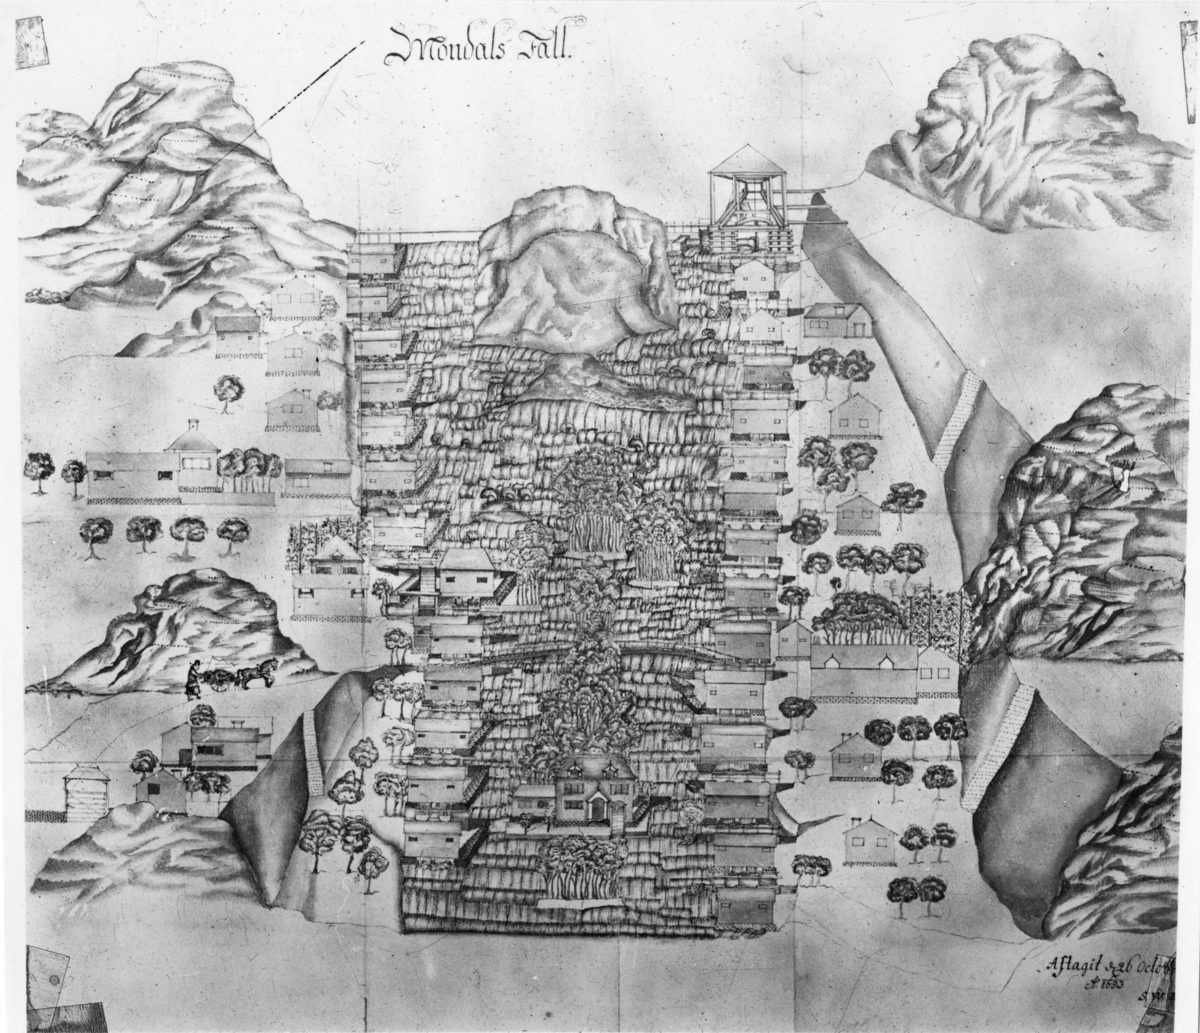 Moudals Fall.
Aftagit d 26 Octob
A 1693